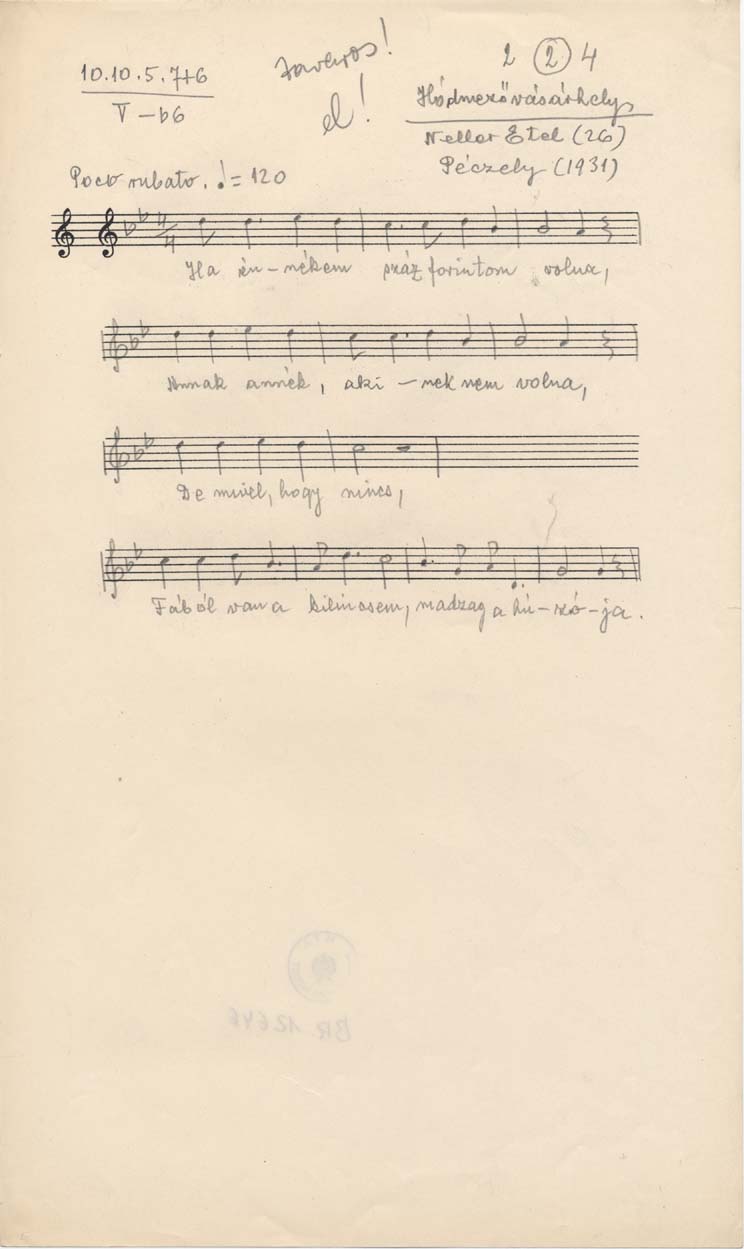 10.10.5.7+6
V – b6
zavaros!
el!
2 2 4
Hódmezővásárhely
Neller Etel (26)
Péczely (1931)
Poco rubato. ♩= 120
4/4
Ha én-nékem száz forintom volna,
Annak annék, aki-nek nem volna,
De mivel, hogy nincs,
Fából van a kilincsem, madzag a hú-zó-ja.
BR 12646